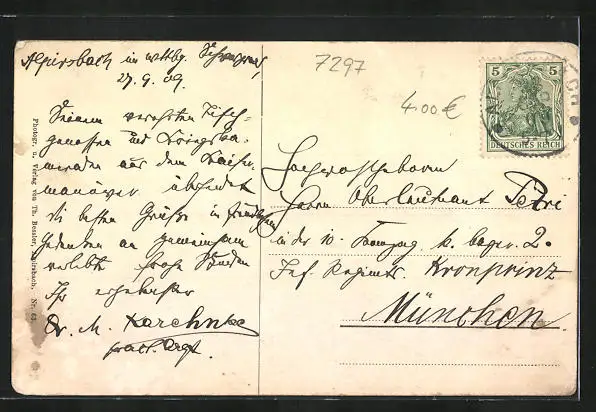 Alpirsbach im wttbg. Schwarzw.
27.9.09.
Seinem verehrten Tisch-
genossen und Kriegska-
meraden aus dem Kaiser-
manöver übersendet
die besten Grüße in
Gedenken an gemeinsam
verlebte frohe Stunden
Ihr ergebenster
Dr. M.
prakt. Arzt.
Photogr. u. Verlag von Th.
7297
4.00 €
5 5
DEUTSCHES REICH
Hochwohlgeboren
Herrn Oberleutnant Petri
in der 10. k. bayer. 2.
Inf. Regiments Kronprinz
München.